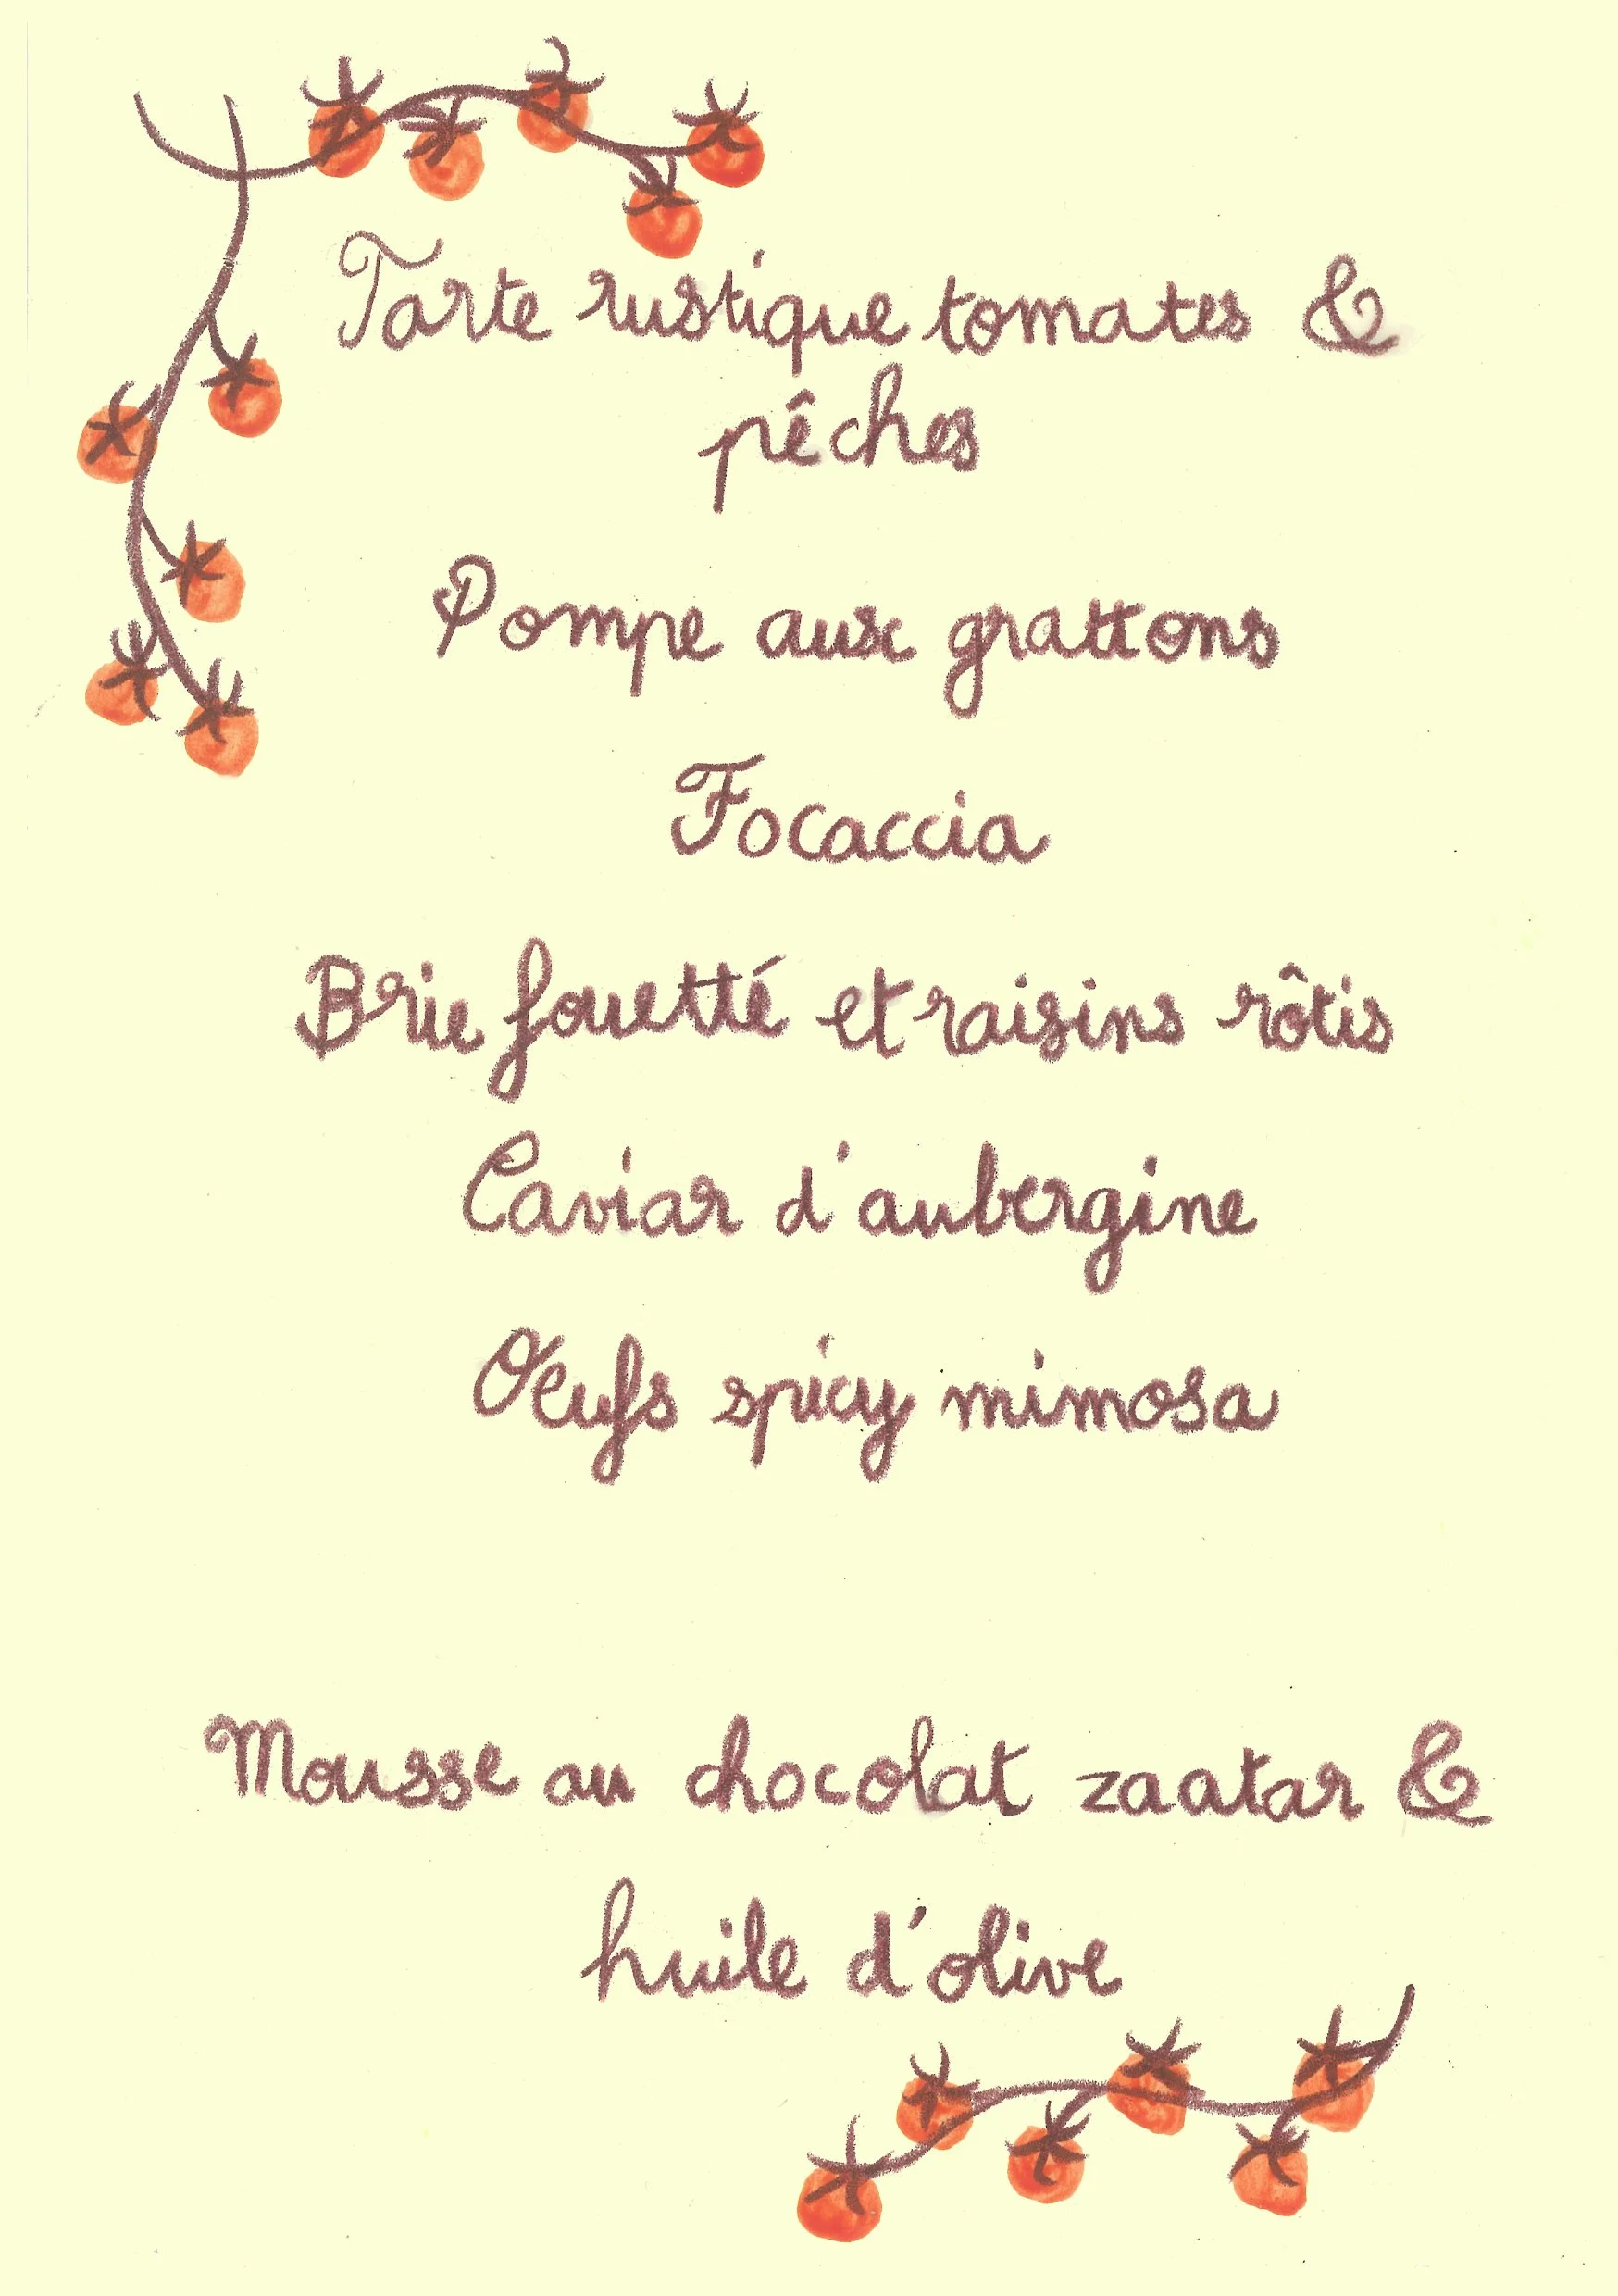 Tarte rustique tomates &
pêches
Pompe aux grattons
Focaccia
Brie fouetté et raisins rôtis
Caviar d'aubergine
Œufs spicy mimosa
Mousse au chocolat zaatar &
huile d'olive